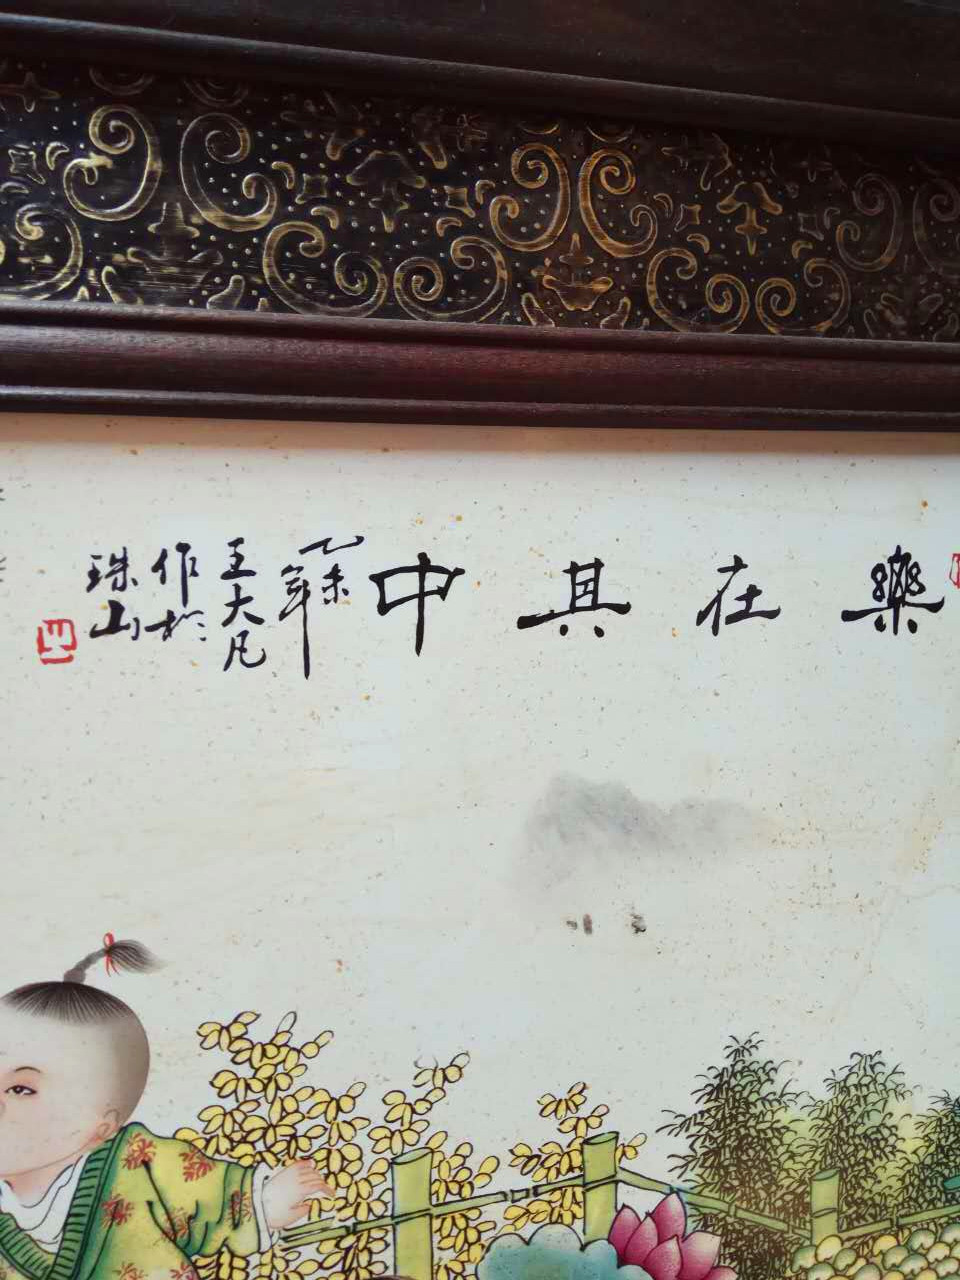 樂在其中
乙未年
王大凡
作於
珠山